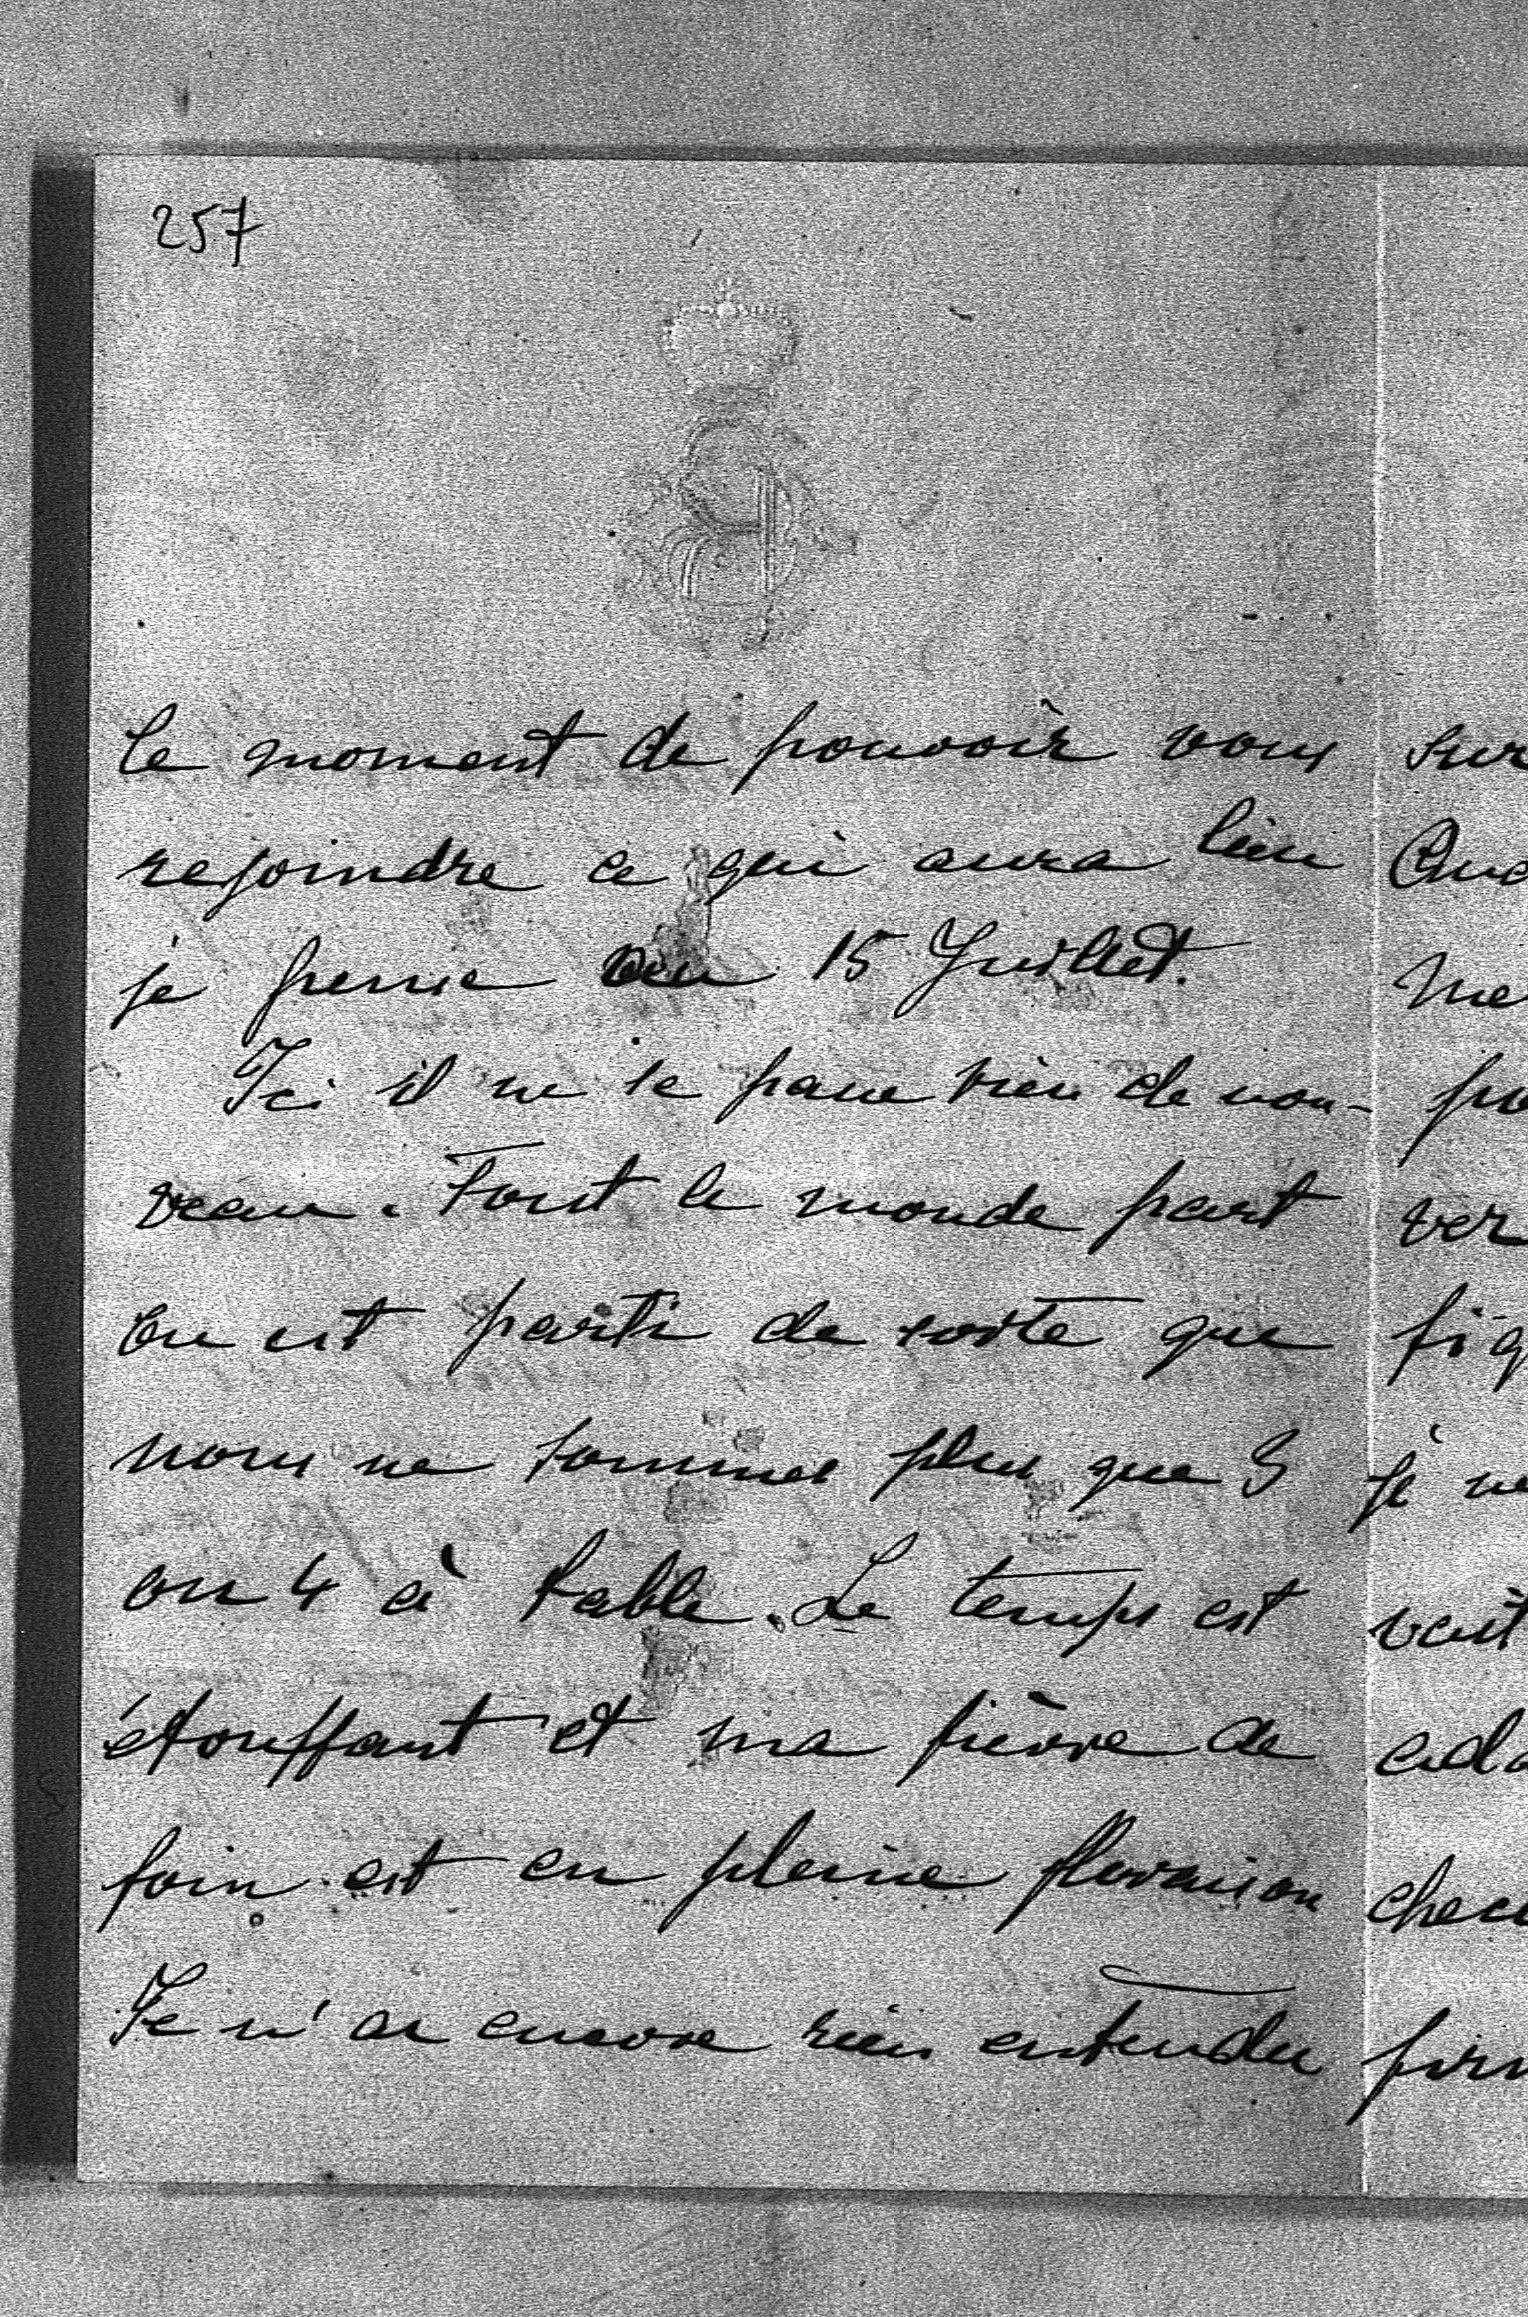 257
le moment de pouvoir vous
rejoindre ce qui aura lieu
je pense au 15 Juillet.
Ici il ne se passe rien de nou-
veau. Tout le monde part
ou est parti de sorte que
nous ne sommes plus que 3
ou 4 à table. Le temps est
étouffant et ma fièvre de
foin est en pleine floraison
Je n'ai encore rien entendu
sur
me
po
ver
fig
je ne